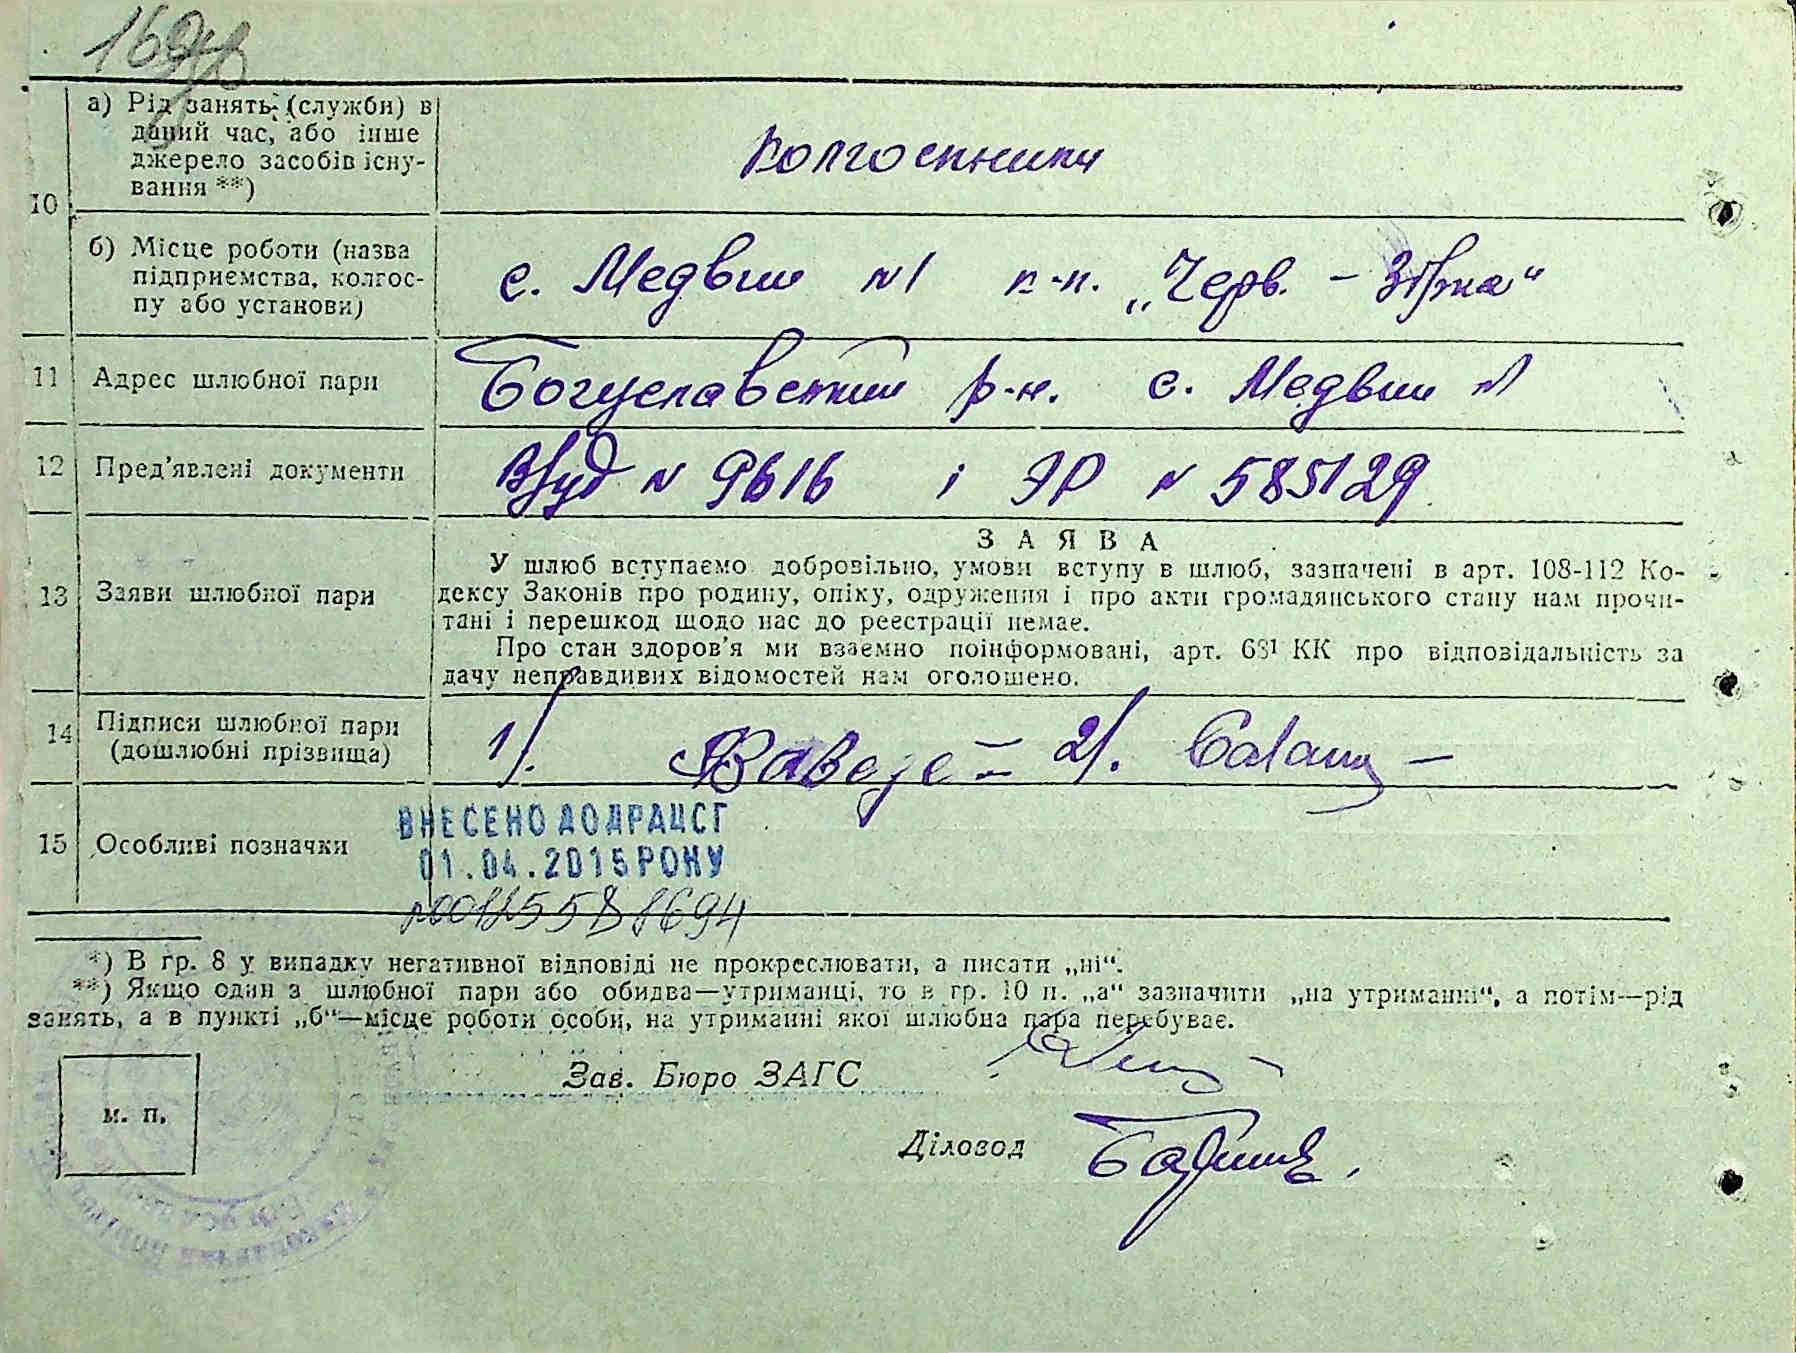 10
а) Рід занять (служби) в
даний час, або інше
джерело засобів існу-
вання **)
колгоспники
б) Місце роботи (назва
підприємства, колгос-
пу або установи)
с. Медвин №1 к-п. „Черв. – Зірка“
11 Адрес шлюбної пари
Богуславський р-н. с. Медвин №1
12 Пред’явлені документи
№ 9616 і ЭР № 585129
13 Заяви шлюбної пари
ЗАЯВА
У шлюб вступаємо добровільно, умови вступу в шлюб, зазначені в арт. 108-112 Ко-
дексу Законів про родину, опіку, одруження і про акти громадянського стану нам прочи-
тані і перешкод щодо нас до реєстрації немає.
Про стан здоров’я ми взаємно поінформовані, арт. 68¹ КК про відповідальність за
дачу неправдивих відомостей нам оголошено.
14 Підписи шлюбної пари
(дошлюбні прізвища)
1/. 2/.
15 Особливі позначки
ВНЕСЕНО ДО ДРАЦСГ
01.04.2015 РОКУ
*) В гр. 8 у випадку негативної відповіді не прокреслювати, а писати „ні“.
**) Якщо один з шлюбної пари або обидва—утриманці, то в гр. 10 п. „а“ зазначити „на утриманні“, а потім—рід
занять, а в пункті „б“—місце роботи особи, на утриманні якої шлюбна пара перебуває.
Зав. Бюро ЗАГС
м. п.
Діловод